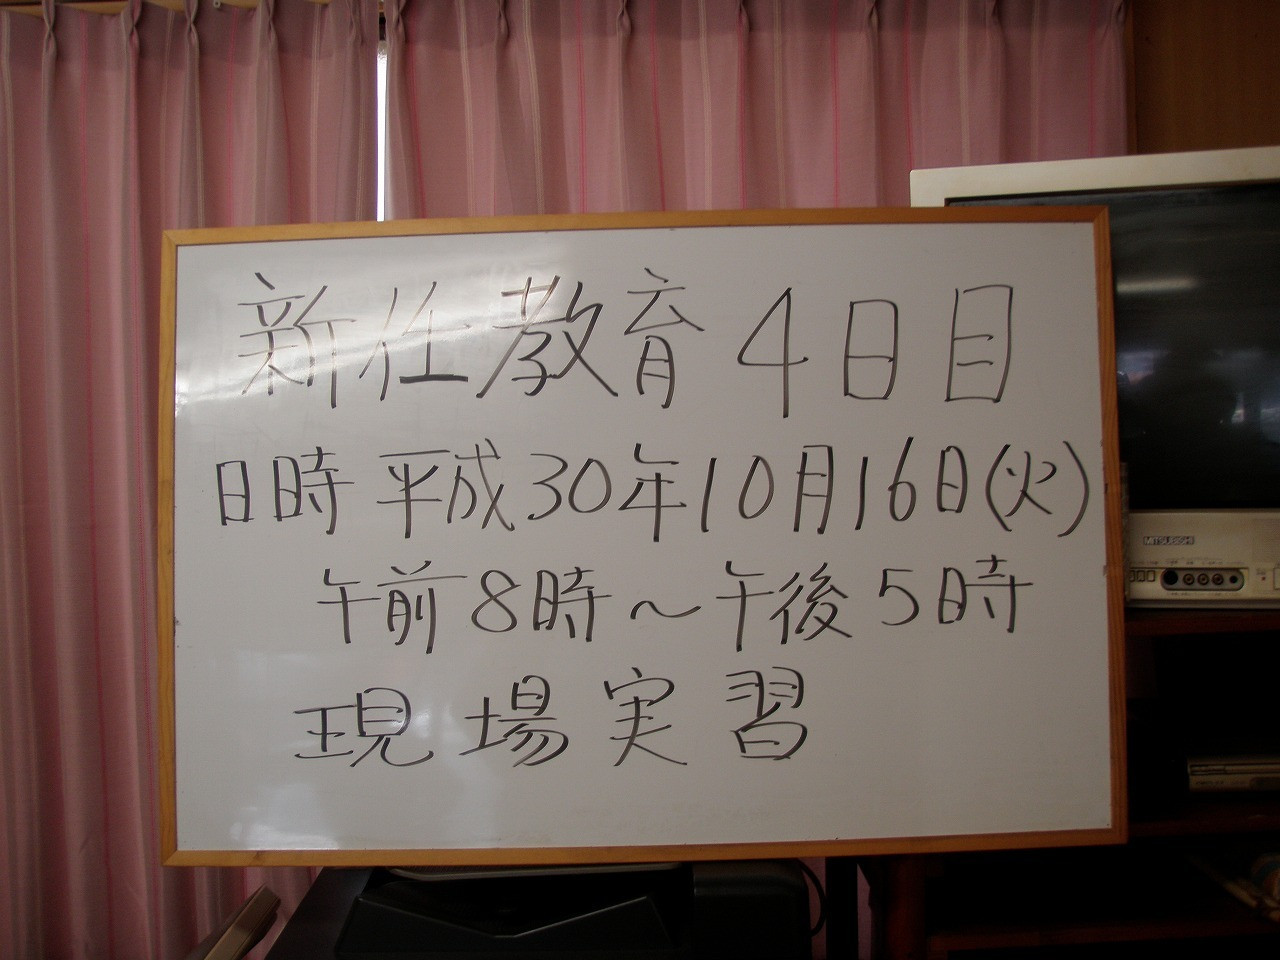 新任教育4日目
日時 平成30年10月16日(火)
午前8時～午後5時
現場実習
MITSUBISHI